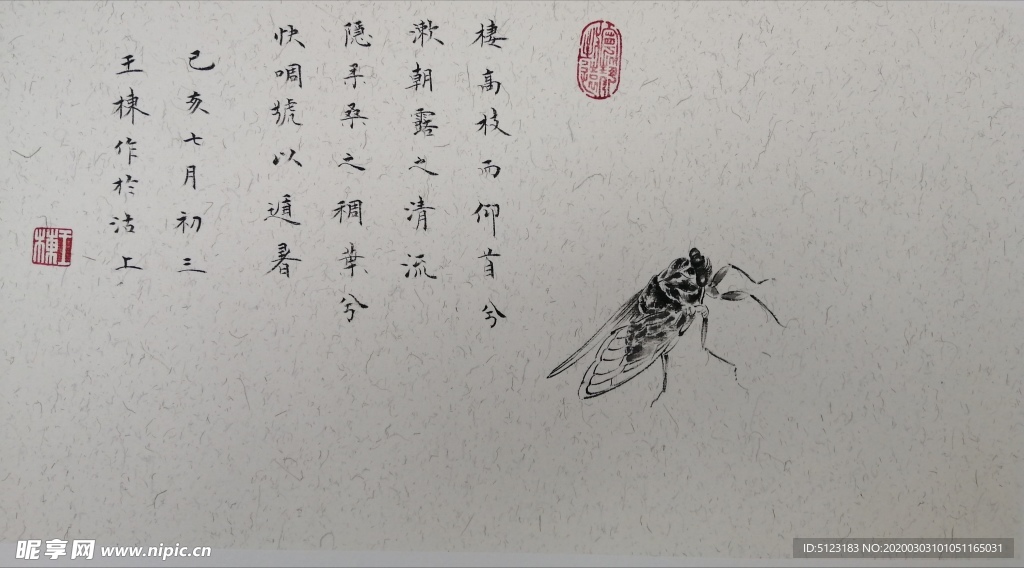 棲高枝而仰首兮
漱朝露之清流
隱柔桑之稠葉兮
快啁號以遁暑
己亥七月初三
王棟作於沽上
王棟
昵享网 www.nipic.cn
ID:5123183 NO:20200303101051165031